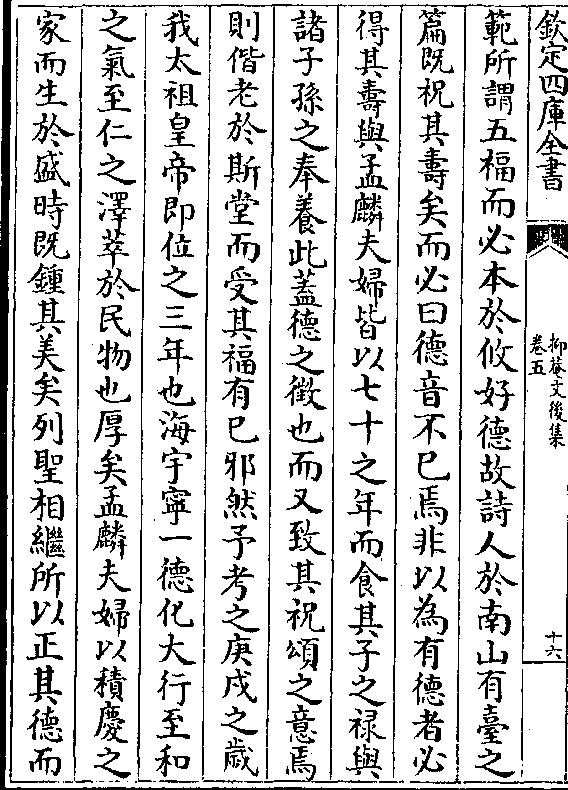 欽定四庫全書
抑菴文後集
卷五
十六
範所謂五福而必本於攸好德故詩人於南山有臺之
篇既祝其壽矣而必曰德音不已焉非以為有德者必
得其壽與孟麟夫婦皆以七十之年而食其子之禄與
諸子孫之奉養此蓋德之徵也而又致其祝頌之意焉
則偕老於斯堂而受其福有已邪然予考之庚戌之歳
我太祖皇帝即位之三年也海宇寧一德化大行至和
之氣至仁之澤萃於民物也厚矣孟麟夫婦以積慶之
家而生於盛時既鍾其美矣列聖相繼所以正其德而